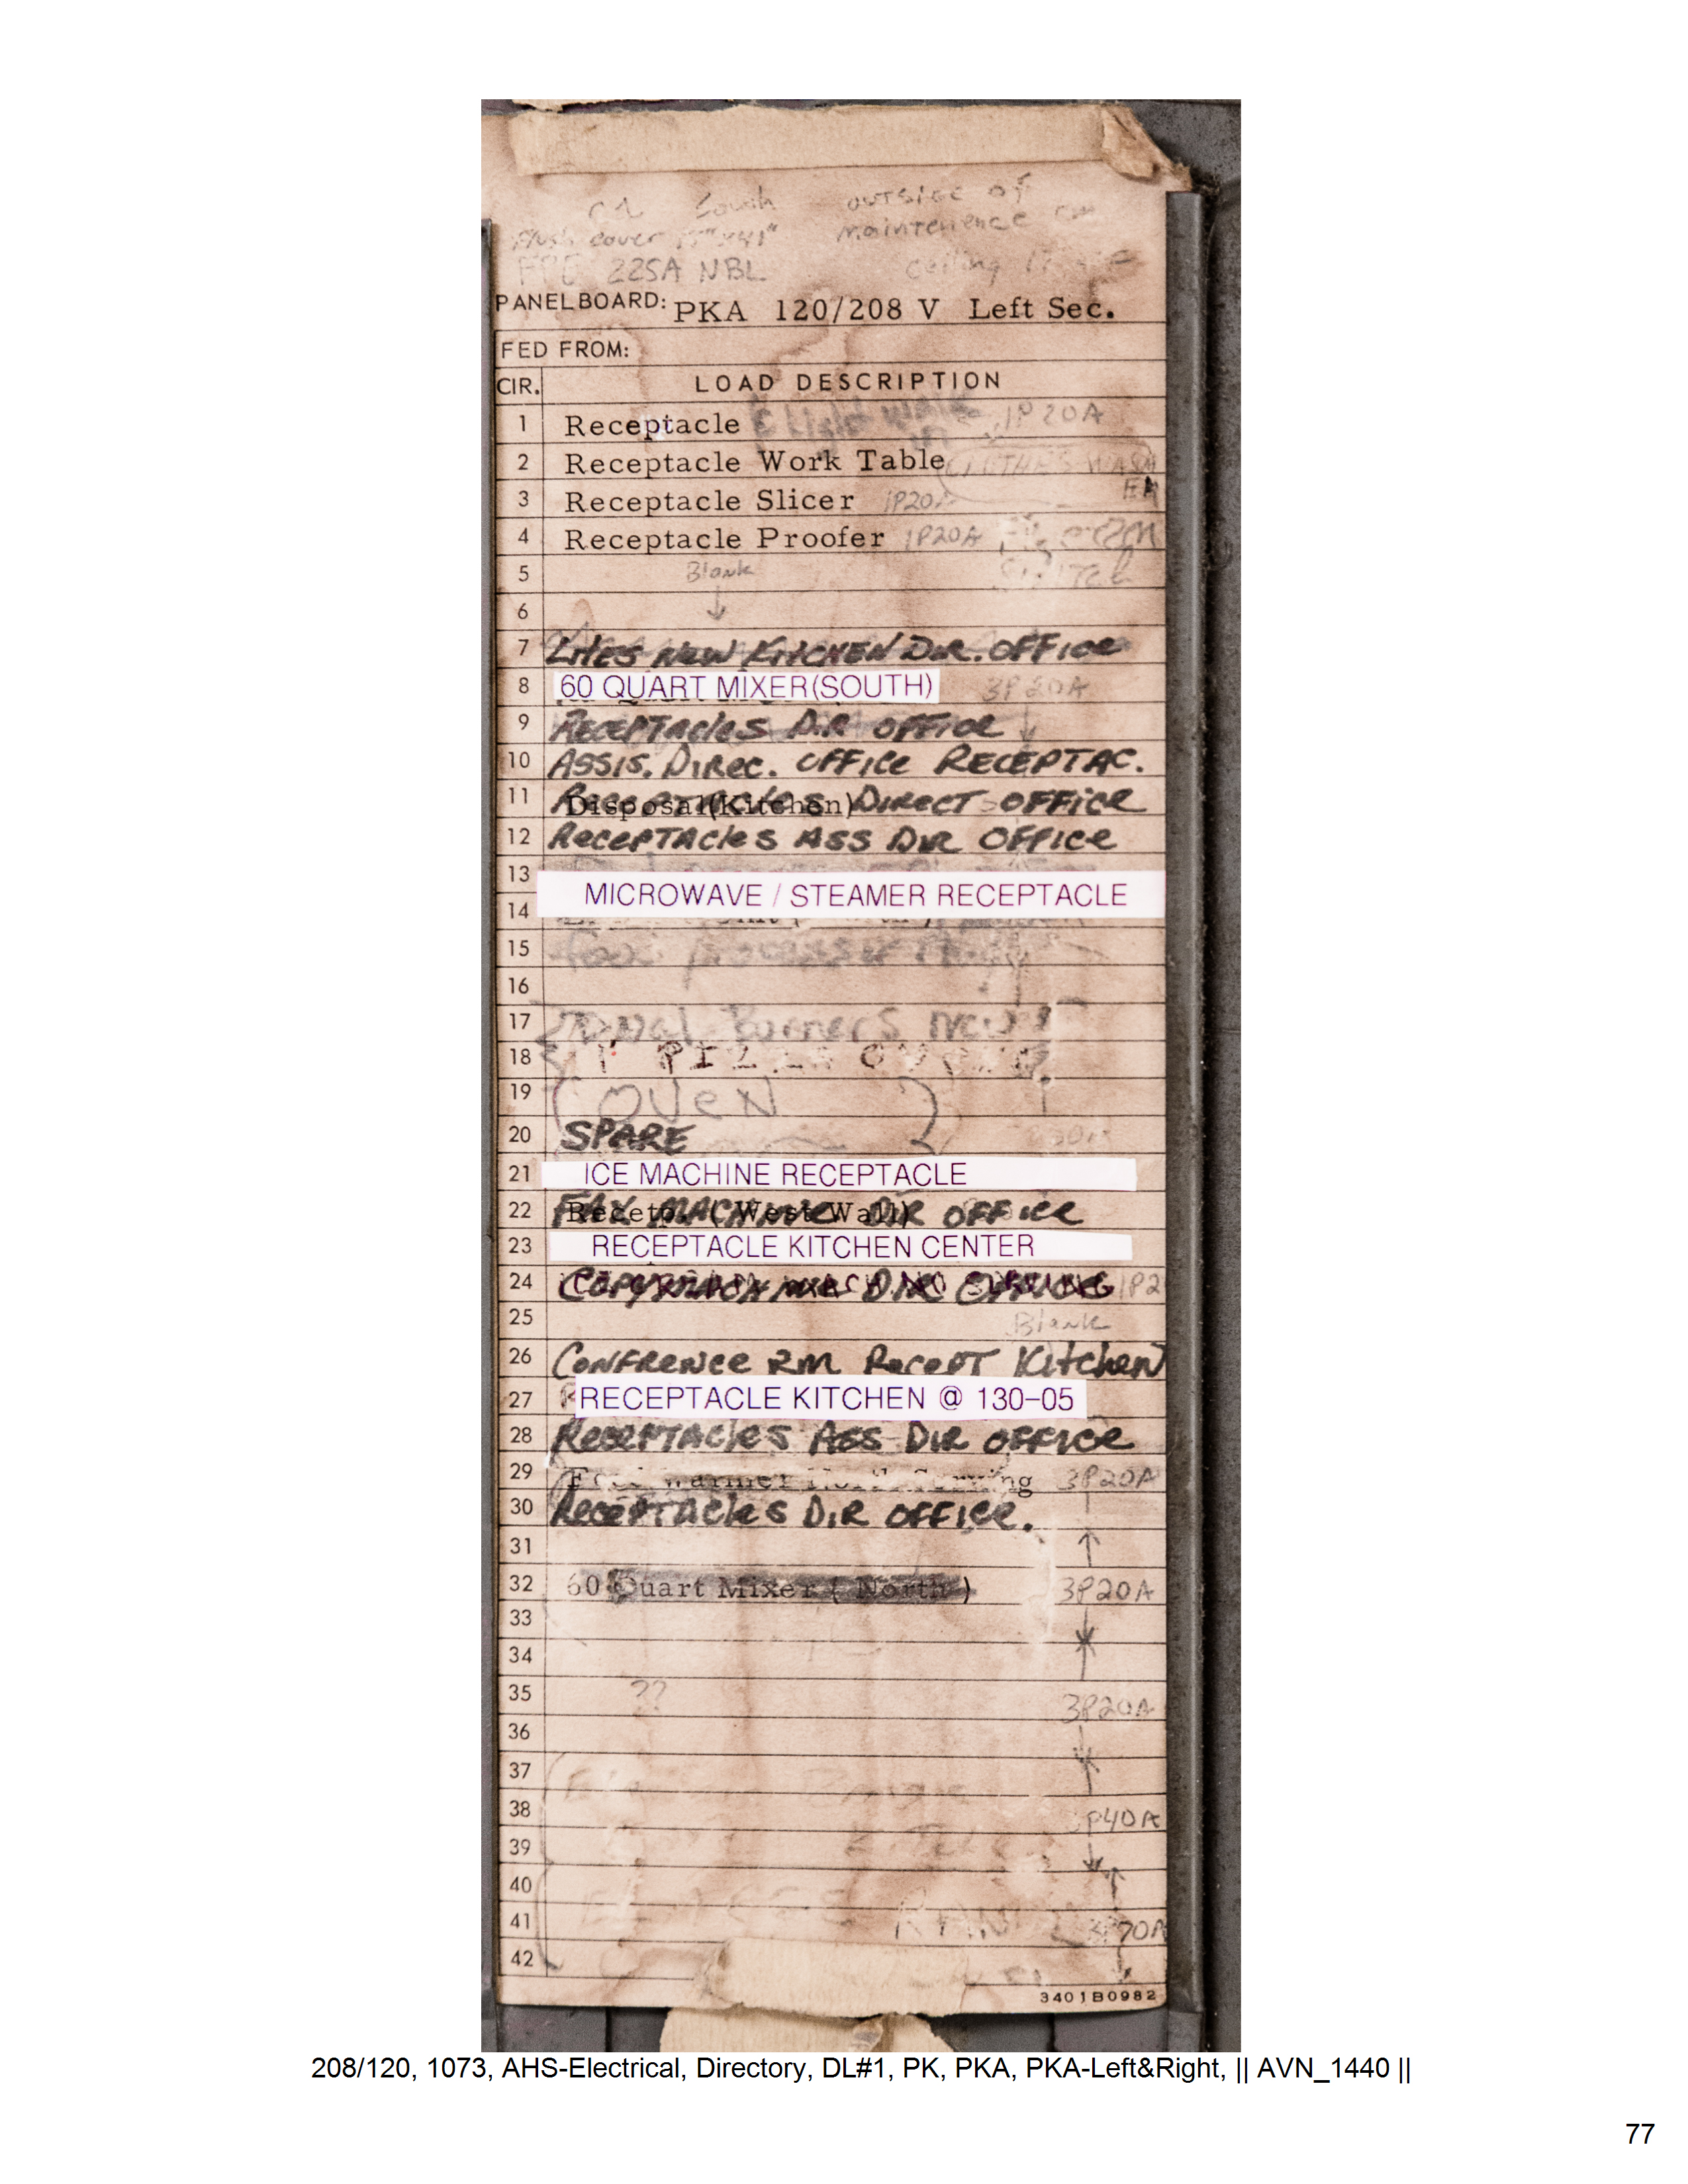 C1 South outside of
Flush cover 15"x41" maintenence
FPE 225A NBL ceiling
PANELBOARD: PKA 120/208 V Left Sec.
FED FROM:
CIR. LOAD DESCRIPTION
1 Receptacle & Light walk in 1P20A
2 Receptacle Work Table CLOTHES WASH
ER
3 Receptacle Slicer 1P20A
4 Receptacle Proofer 1P20A
5 Blank
6
7 LITES NEW KITCHEN DIR. OFFICE
8 60 QUART MIXER(SOUTH) 3P 20A
9 RECEPTACLES DIR OFFICE
10 ASSIS. DIREC. OFFICE RECEPTAC.
11 Disposal(Kitchen) DIRECT OFFICE
12 RECEPTACLES ASS DIR OFFICE
13
MICROWAVE / STEAMER RECEPTACLE
14
15 Food processor
16
17 Burners New
18 PIZZA OVEN
19 OVEN
20 SPARE
21 ICE MACHINE RECEPTACLE
22 FAX MACHINE DIR OFFICE
23 RECEPTACLE KITCHEN CENTER
24 COPY MACH DIR OFFICE 1P2
25 Blank
26 CONFRENCE RM RECEPT KITCHEN
27 RECEPTACLE KITCHEN @ 130-05
28 RECEPTACLES ASS DIR OFFICE
29 Warmer Serving 3P20A
30 RECEPTACLES DIR OFFICE.
31
32 60 Quart Mixer ( North ) 3P20A
33
34
35 ?? 3P20A
36
37
38 3P40A
39
40
41 3P70A
42
3401B0982
208/120, 1073, AHS-Electrical, Directory, DL#1, PK, PKA, PKA-Left&Right, || AVN_1440 ||
77